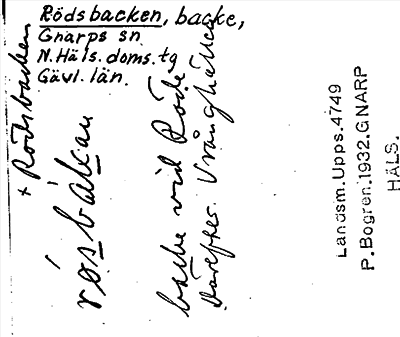 Rödsbacken, backe,
Gnarps sn
N. Häls. doms. tg
Gävl. län.
+ Rödsbacken
rósbákan
backe vid Röde
Därefter Vrånghällen
Landsm. Upps. 4749
P. Bogren, 1932. GNARP
HÄLS.